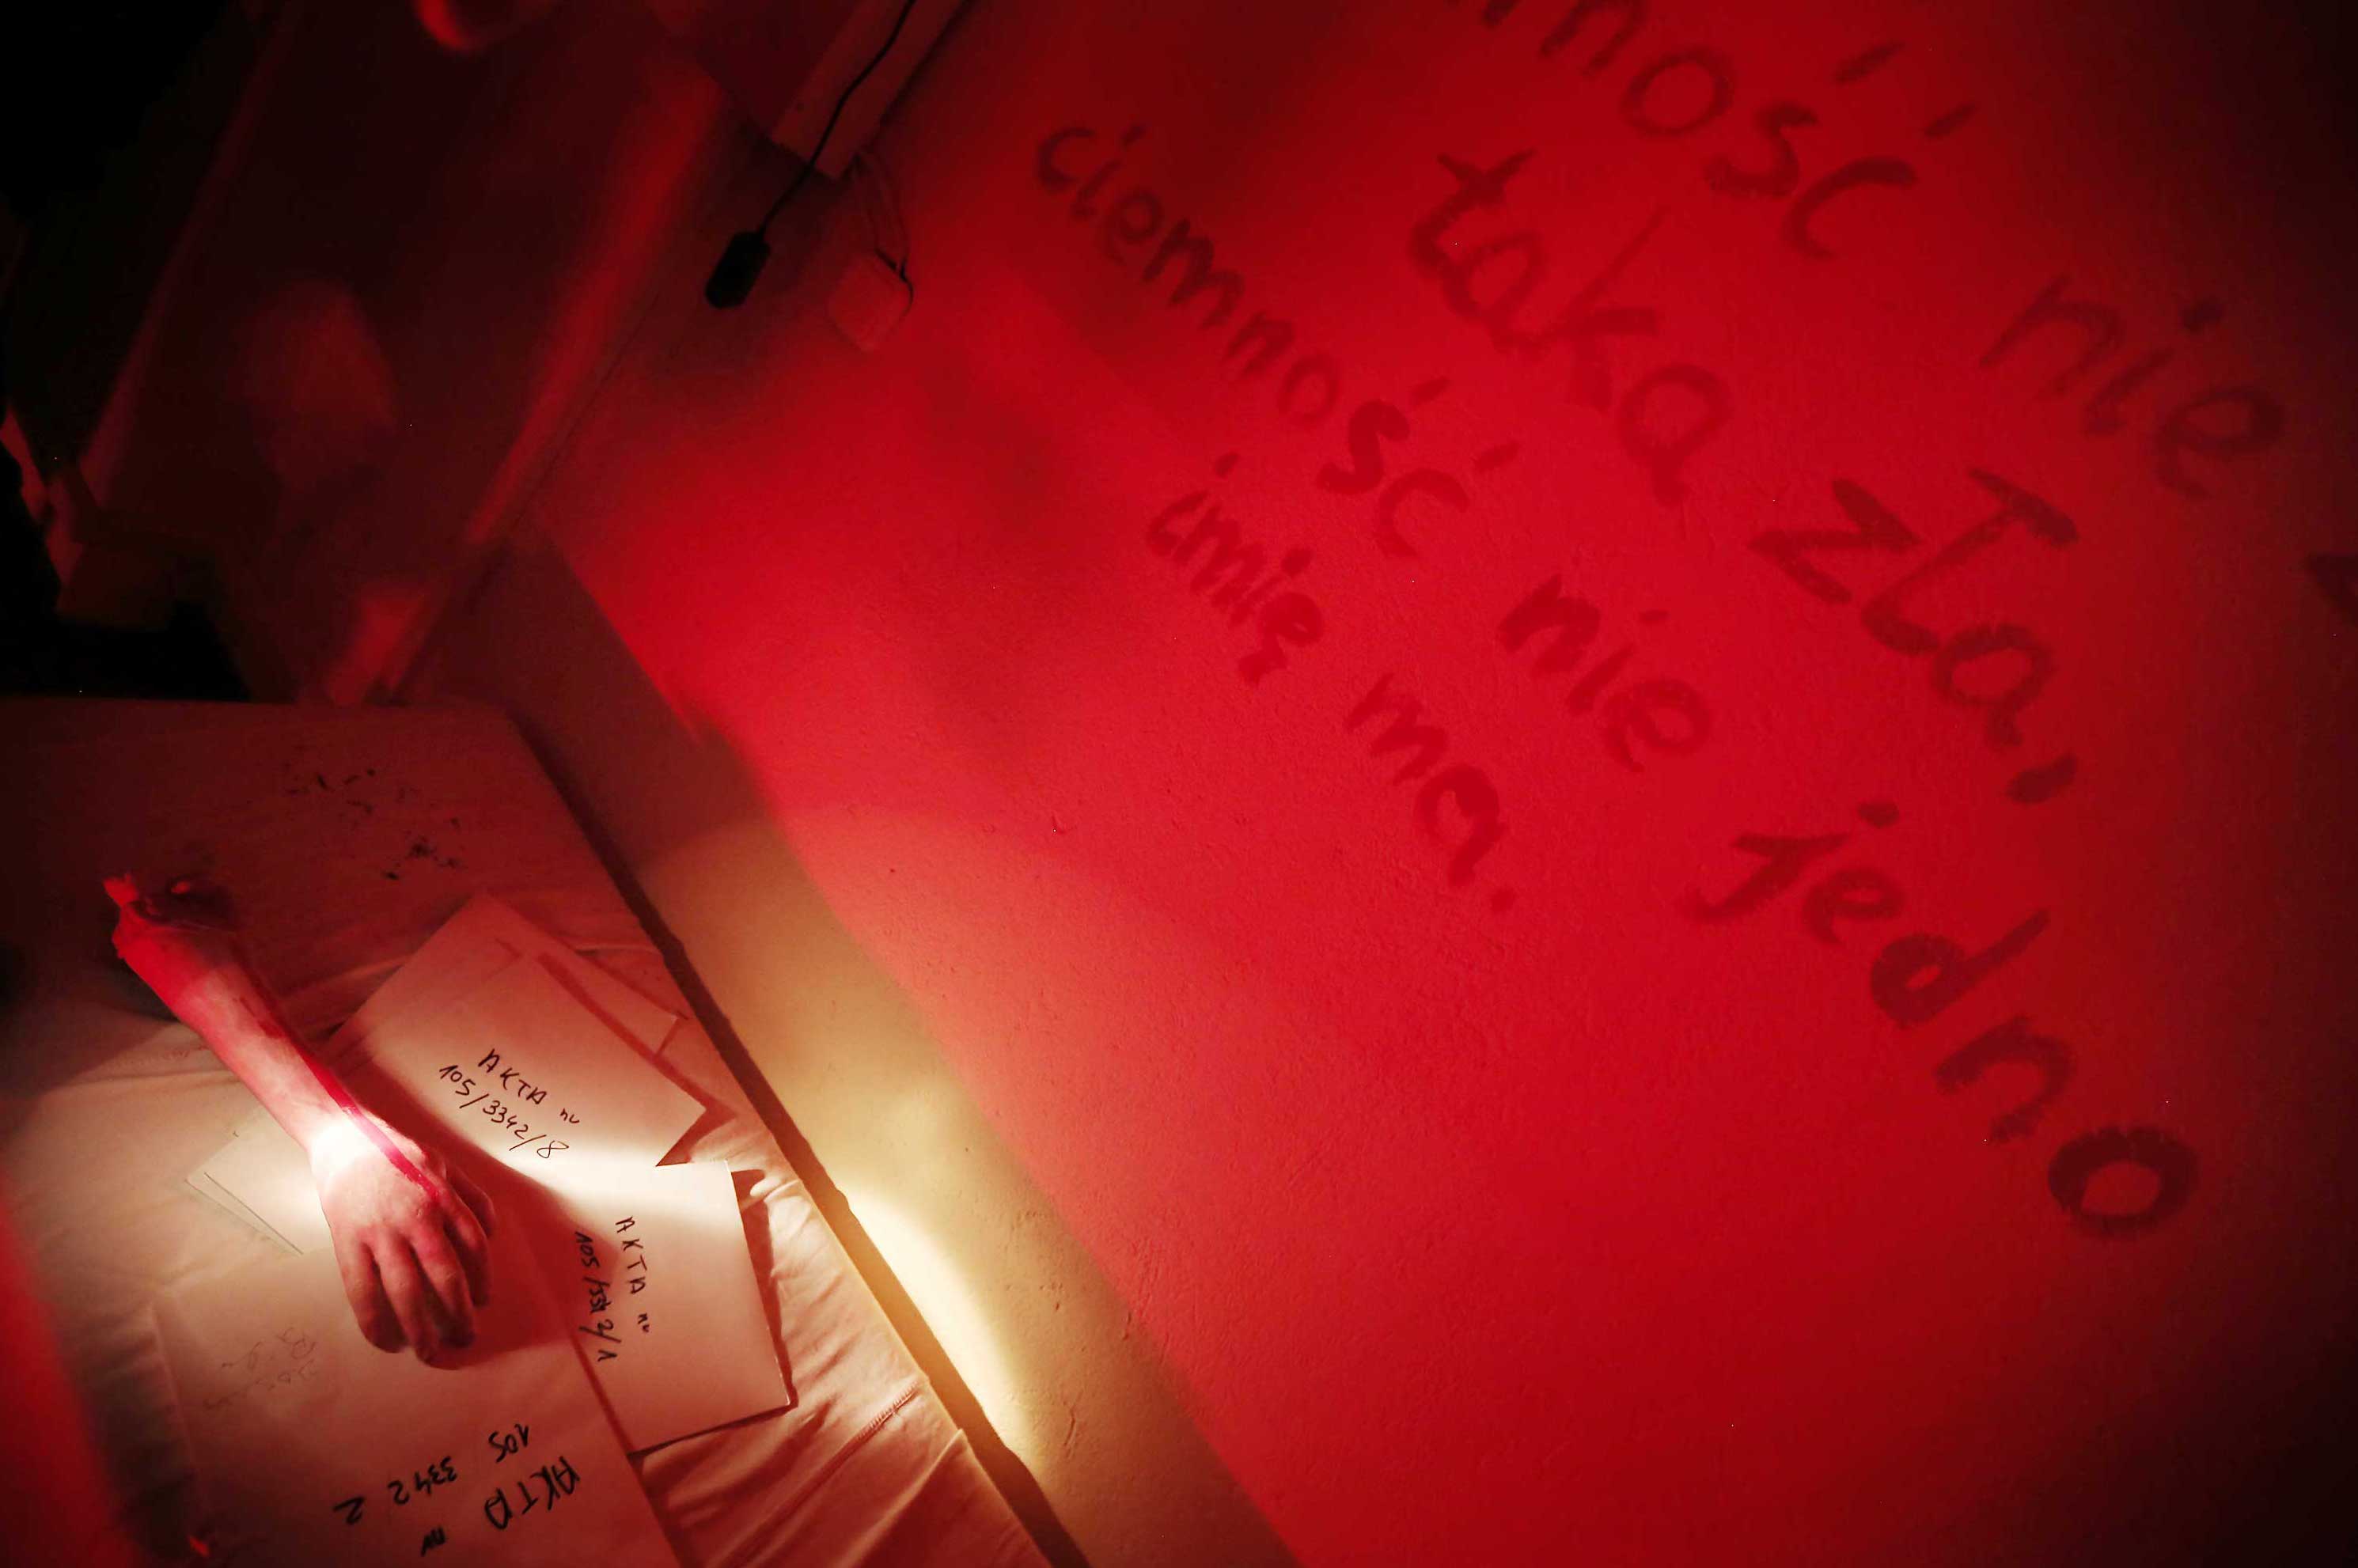 ność nie
taka zła,
ciemność nie jedno
imię ma.
AKTA nr
105/3342/8
AKTA nr
105/3342/1
AKTA nr
105 3342 2